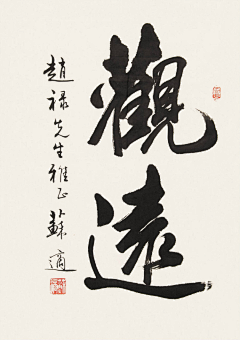 觀遠
趙禄先生雅正 蘇適